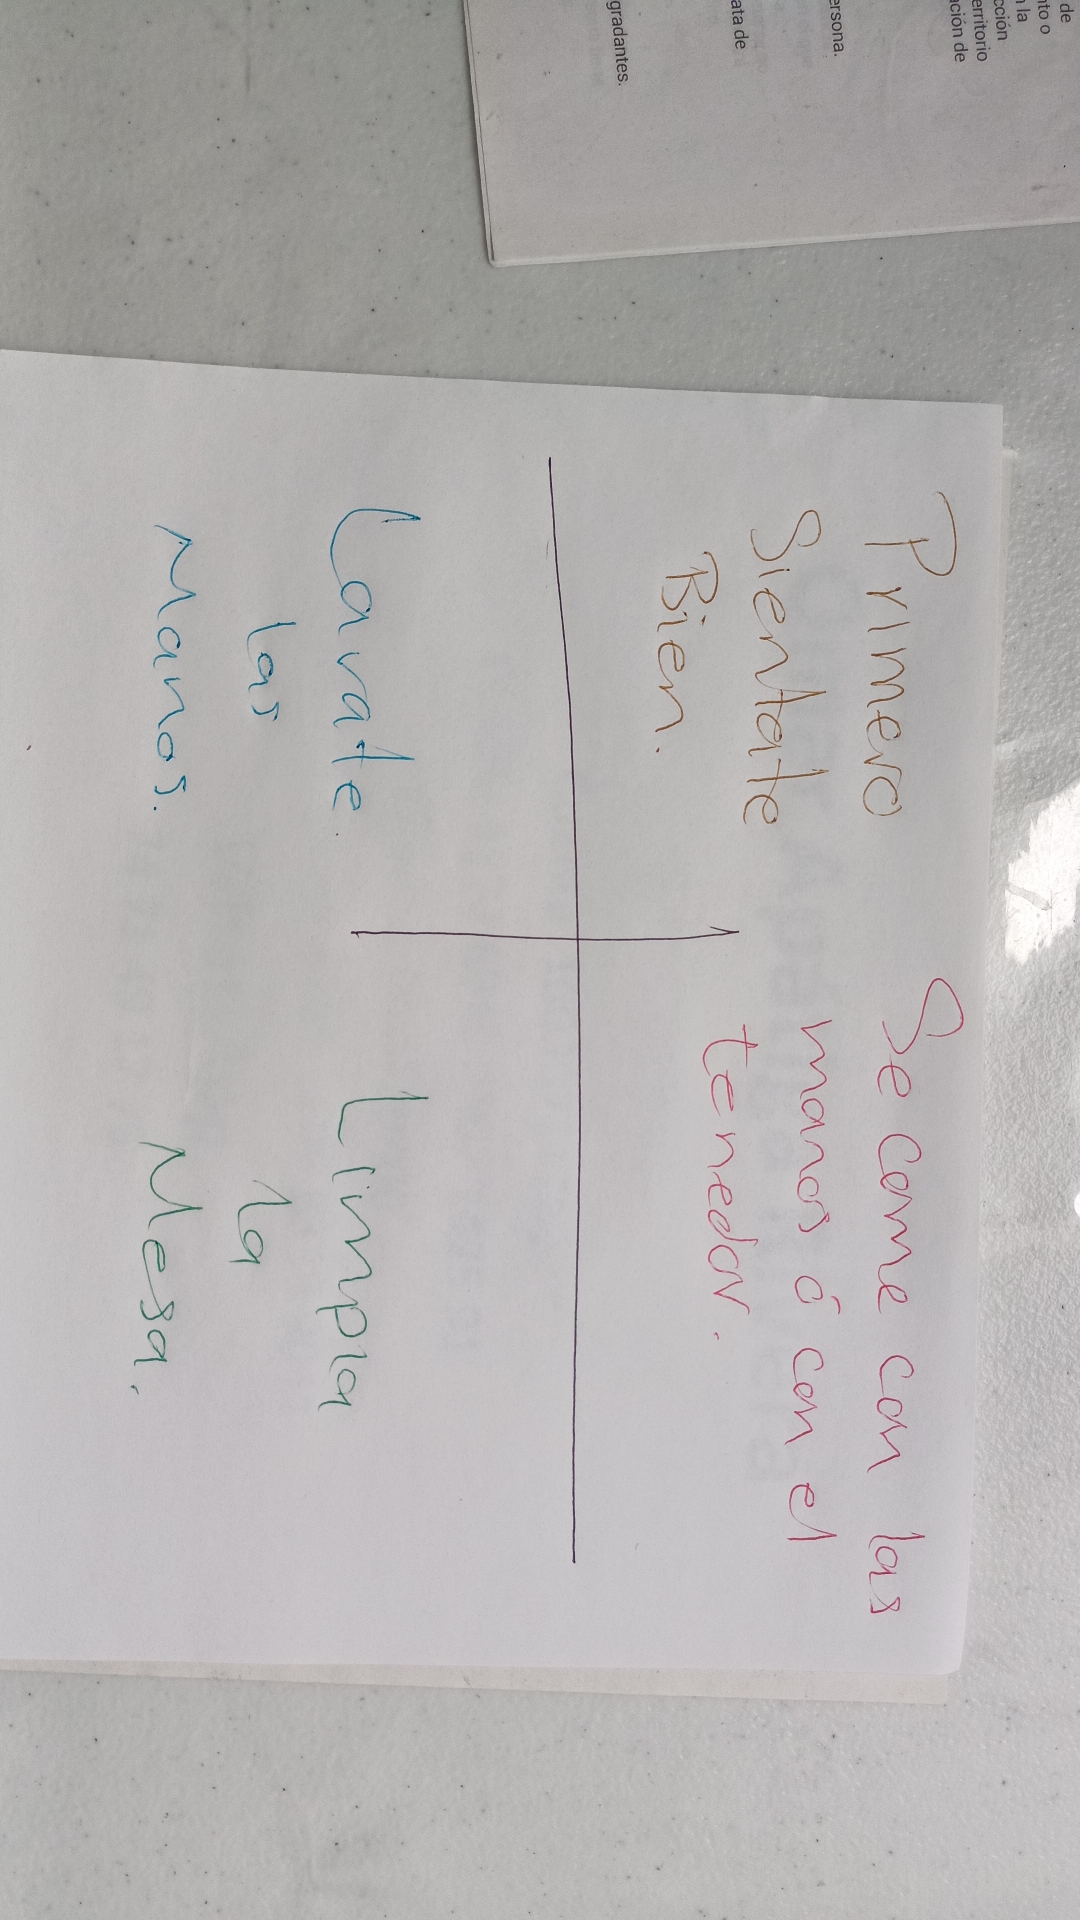 de
nto o
n la
cción
erritorio
ación de
ersona.
ata de
gradantes.
Primero
Sientate
Bien.
Se come con las
manos ó con el
tenedor.
Lavate.
las
Manos.
Limpia
la
Mesa.